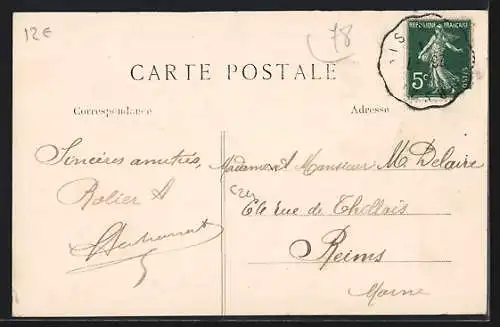 12€
78
RÉPUBLIQUE FRANÇAISE
5c
POSTES
CARTE POSTALE
Correspondance
Adresse
Sincères amitiés,
Rolier A
Madame et Monsieur M. Delaire
rue de Thillois
Reims
Marne